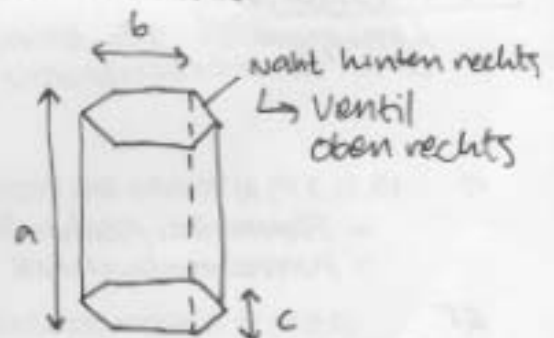 b
naht hinten rechts
↳ Ventil
oben rechts
a
c